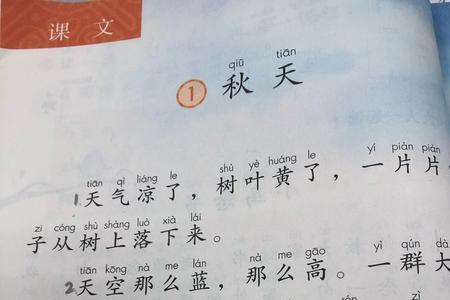 课 文
qiū tiān
1 秋 天
tiān qì liáng le shù yè huáng le yí piàn piàn
1.天气凉了，树叶黄了，一片片
zi cóng shù shàng luò xià lái
子从树上落下来。
tiān kōng nà me lán nà me gāo yì qún dà
2天空那么蓝，那么高。一群大